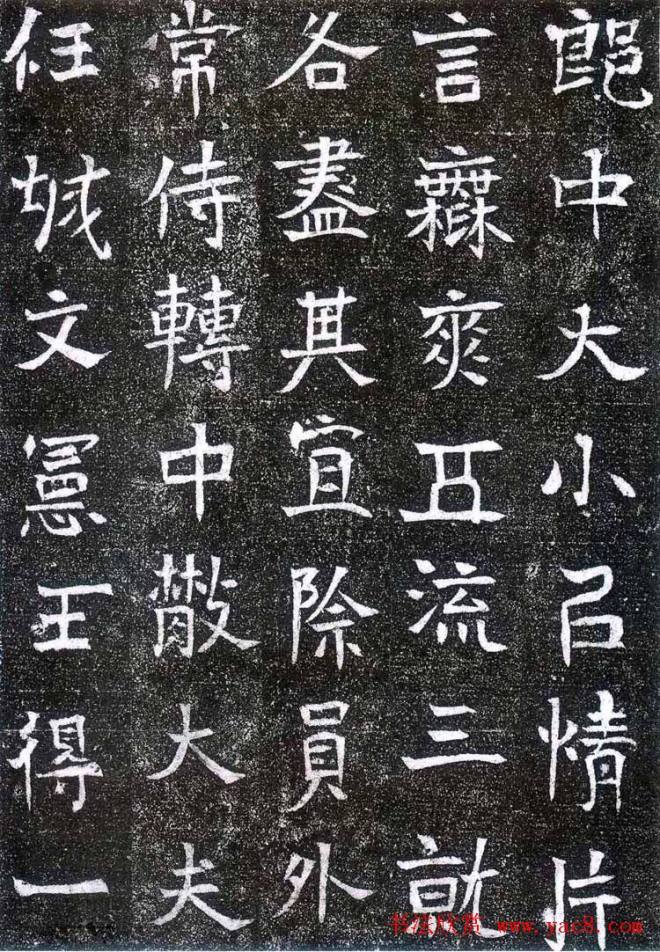 郎中大小㠯情片
言無爽五流三就
各盡其宜除員外
常侍轉中散大夫
任城文憲王得一
书法欣赏 www.yac8.com